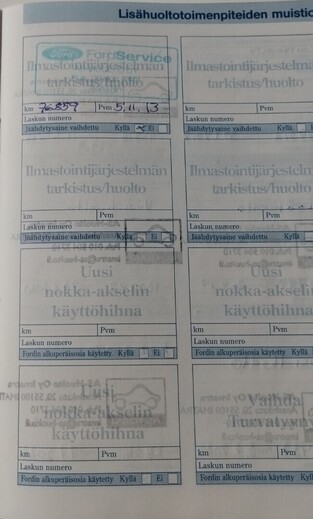 Lisähuoltotoimenpiteiden muistio
Ford FordService
Ilmastointijärjestelmän
tarkistus/huolto
km 76859 Pvm 5.11.13
Laskun numero
Jäähdytysaine vaihdettu Kyllä Ei
Ilmastointijärjestelmän
tarkistus/huolto
km
Laskun numero
Jäähdytysaine vaihdettu Kyllä
Ilmastointijärjestelmän
tarkistus/huolto
km Pvm
Laskun numero
Jäähdytysaine vaihdettu Kyllä Ei
Ilmastointijärjestelmän
tarkistus/huolto
km
Laskun numero
Jäähdytysaine vaihdettu Kyllä
Uusi
nokka-akselin
käyttöhihna
km Pvm
Laskun numero
Fordin alkuperäisosia käytetty Kyllä Ei
Uusi
nokka-akselin
käyttöhihna
km
Laskun numero
Fordin alkuperäisosia käytetty
Uusi
nokka-akselin
käyttöhihna
km Pvm
Laskun numero
Fordin alkuperäisosia käytetty Kyllä Ei
Vaihda
km
Laskun numero
Fordin alkuperäisosia käytetty